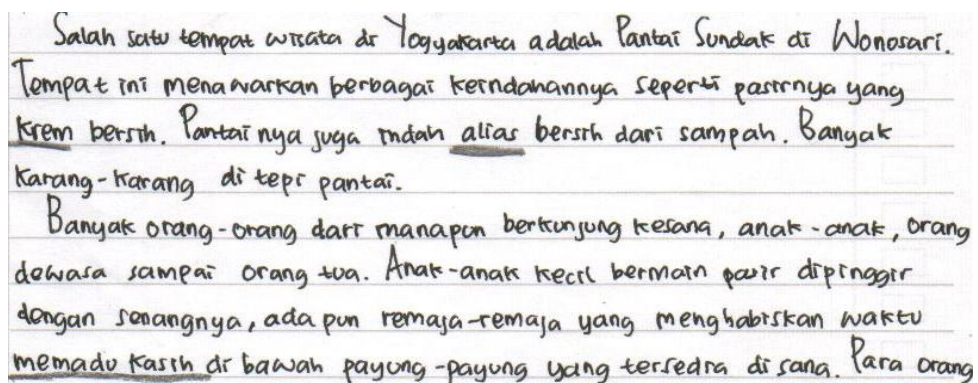 Salah satu tempat wisata di Yogyakarta adalah Pantai Sundak di Wonosari.
Tempat ini menawarkan berbagai keindahannya seperti pasirnya yang
krem bersih. Pantainya juga indah alias bersih dari sampah. Banyak
karang-karang di tepi pantai.
Banyak orang-orang dari manapun berkunjung kesana, anak-anak, orang
dewasa sampai orang tua. Anak-anak kecil bermain pasir dipinggir
dengan senangnya, ada pun remaja-remaja yang menghabiskan waktu
memadu kasih di bawah payung-payung yang tersedia di sana. Para orang